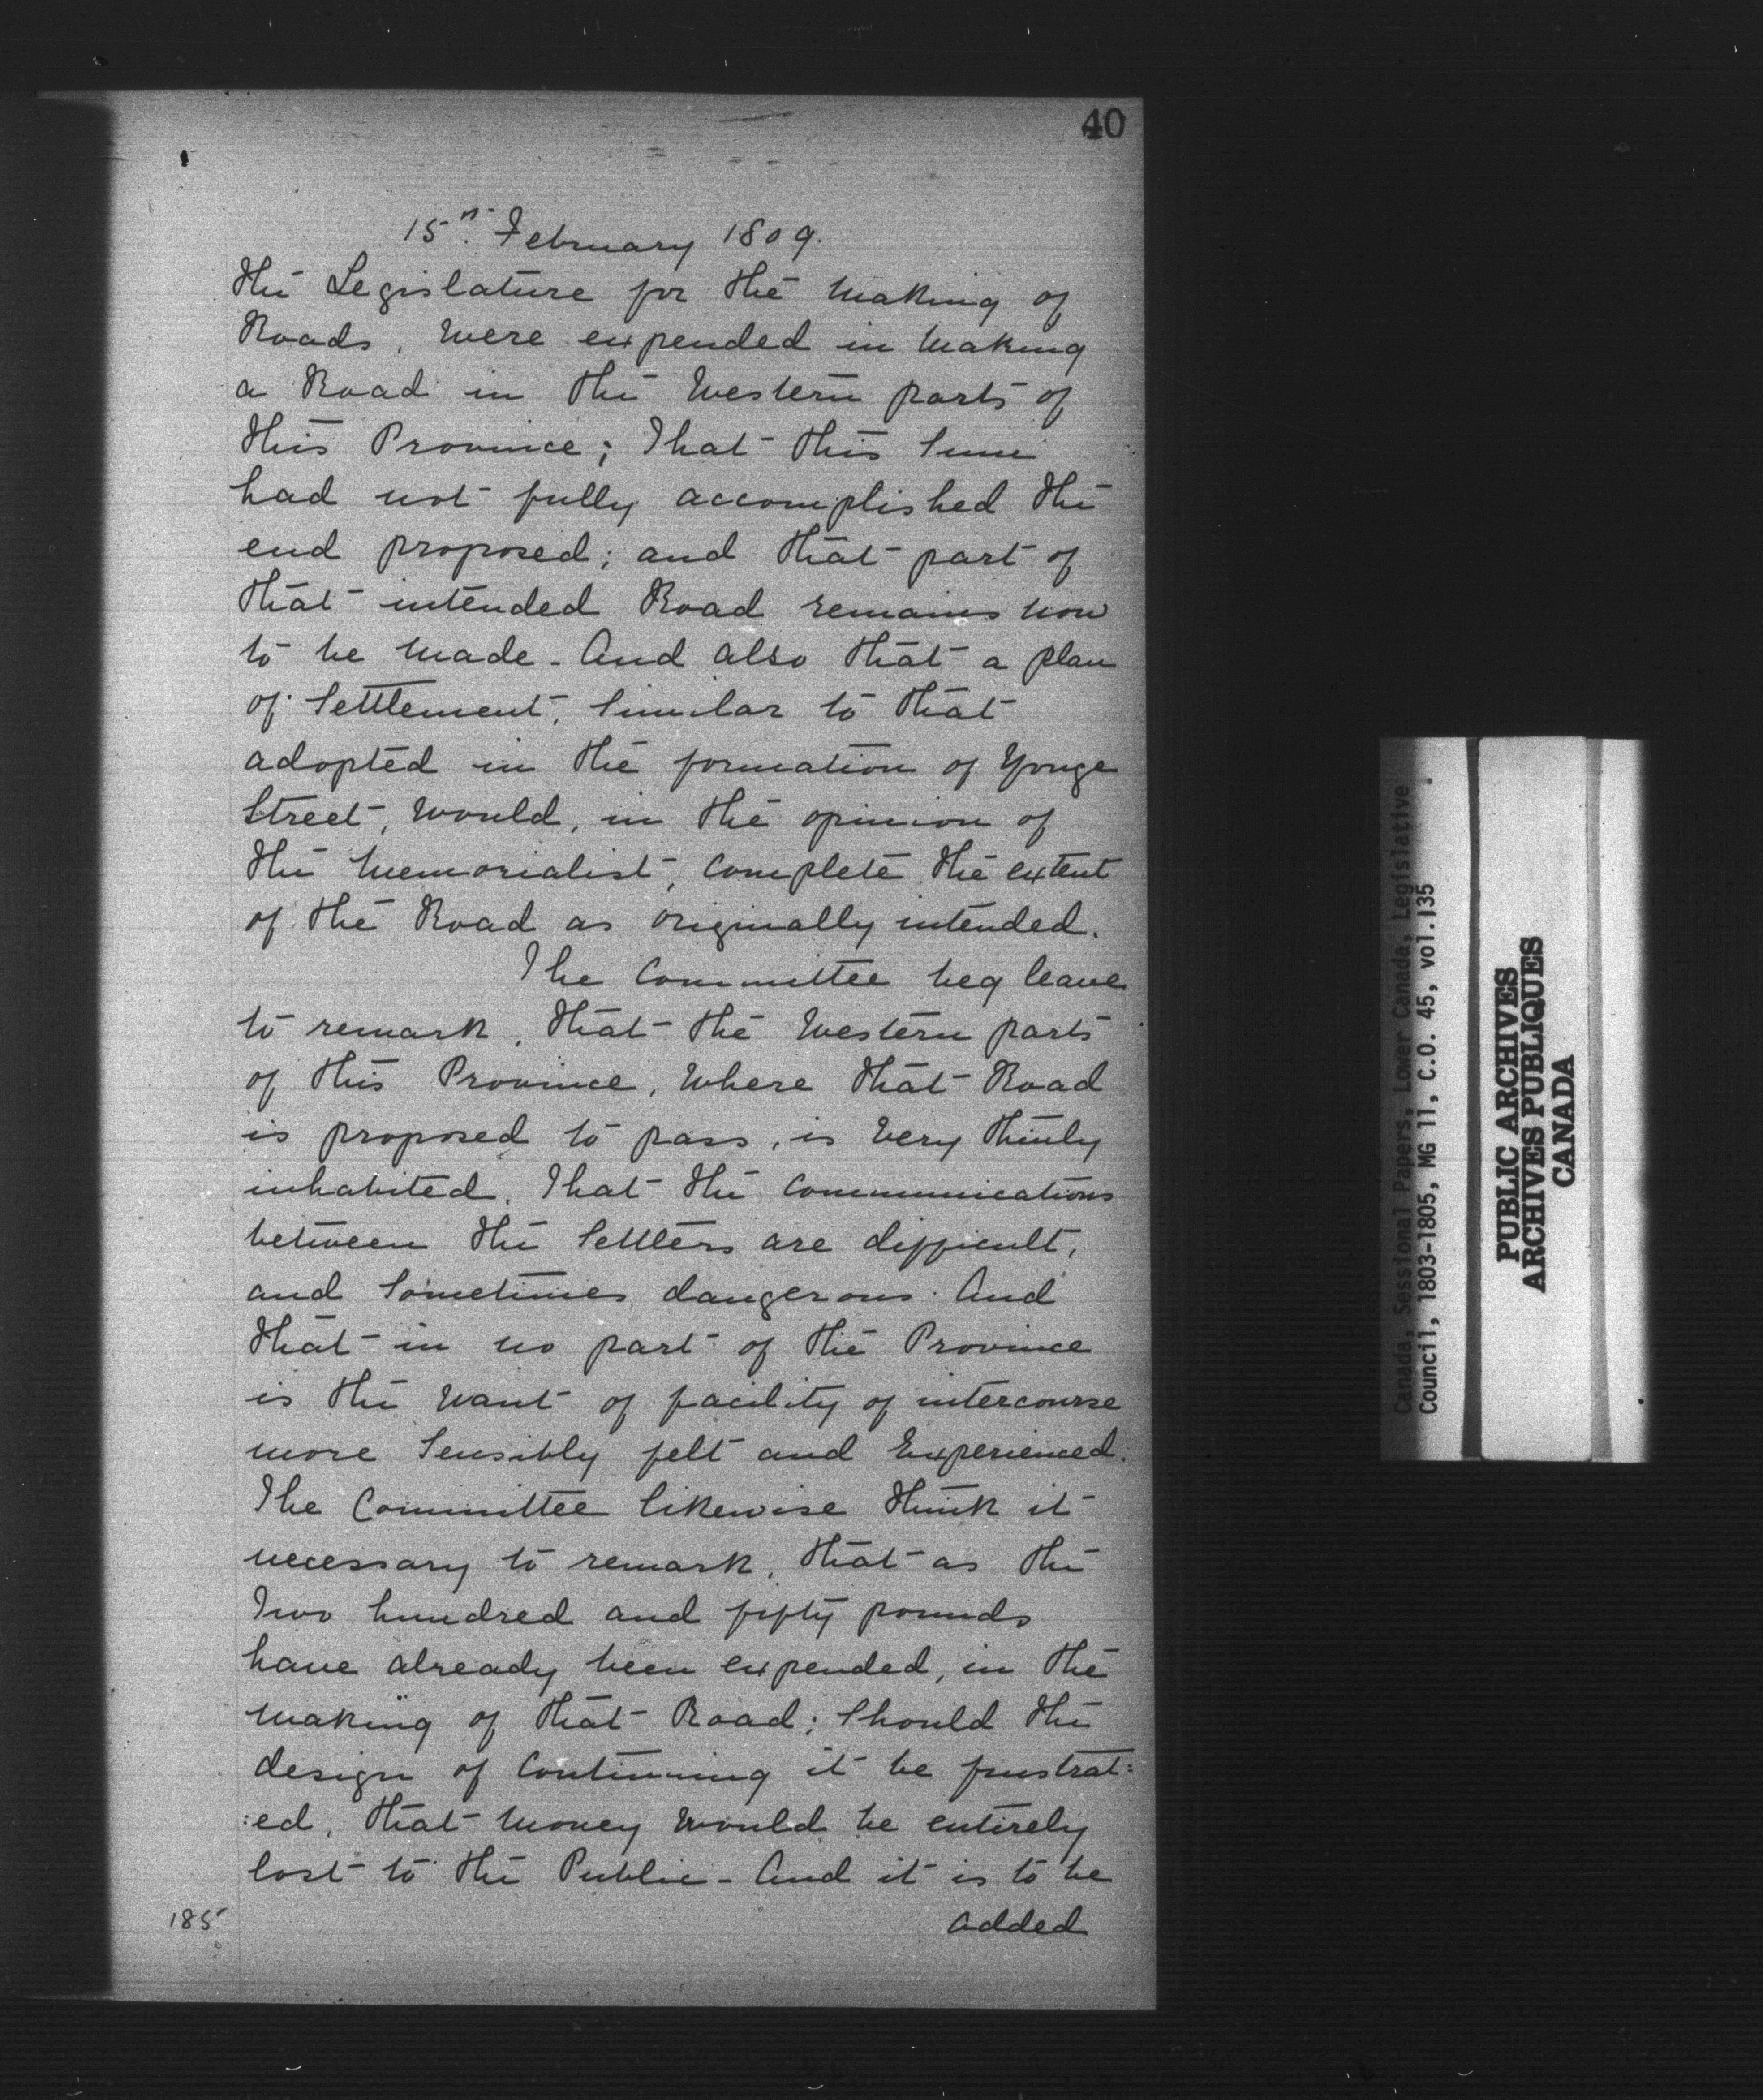 40
15th. February 1809.
the Legislature for the Making of
Roads, Were expended in Making
a Road in the Western parts of
this Province; That this Sum
had not fully accomplished the
end proposed; and that part of
that intended Road remains now
to be Made - And also that a plan
of Settlement, Similar to that
adopted in the formation of Yonge
Street, Would, in the opinion of
the Memorialist, Complete the extent
of the Road as originally intended.
The Committee beg leave
to remark, that the Western parts
of this Province, Where that Road
is proposed to pass, is Very thinly
inhabited, That the Communications
between the Settlers are difficult,
and Sometimes dangerous. And
that in no part of the Province
is the Want of facility of intercourse
more Sensibly felt and Experienced.
The Committee likewise think it
necessary to remark, that as the
Two hundred and fifty pounds
have already been expended, in the
Making of that Road; Should the
design of Continuing it be frustrat:
:ed, that Money Would be entirely
lost to the Public - And it is to be
added
185
Canada, Sessional Papers, Lower Canada, Legislative
Council, 1803-1805, MG 11, C.O. 45, vol.135
PUBLIC ARCHIVES
ARCHIVES PUBLIQUES
CANADA